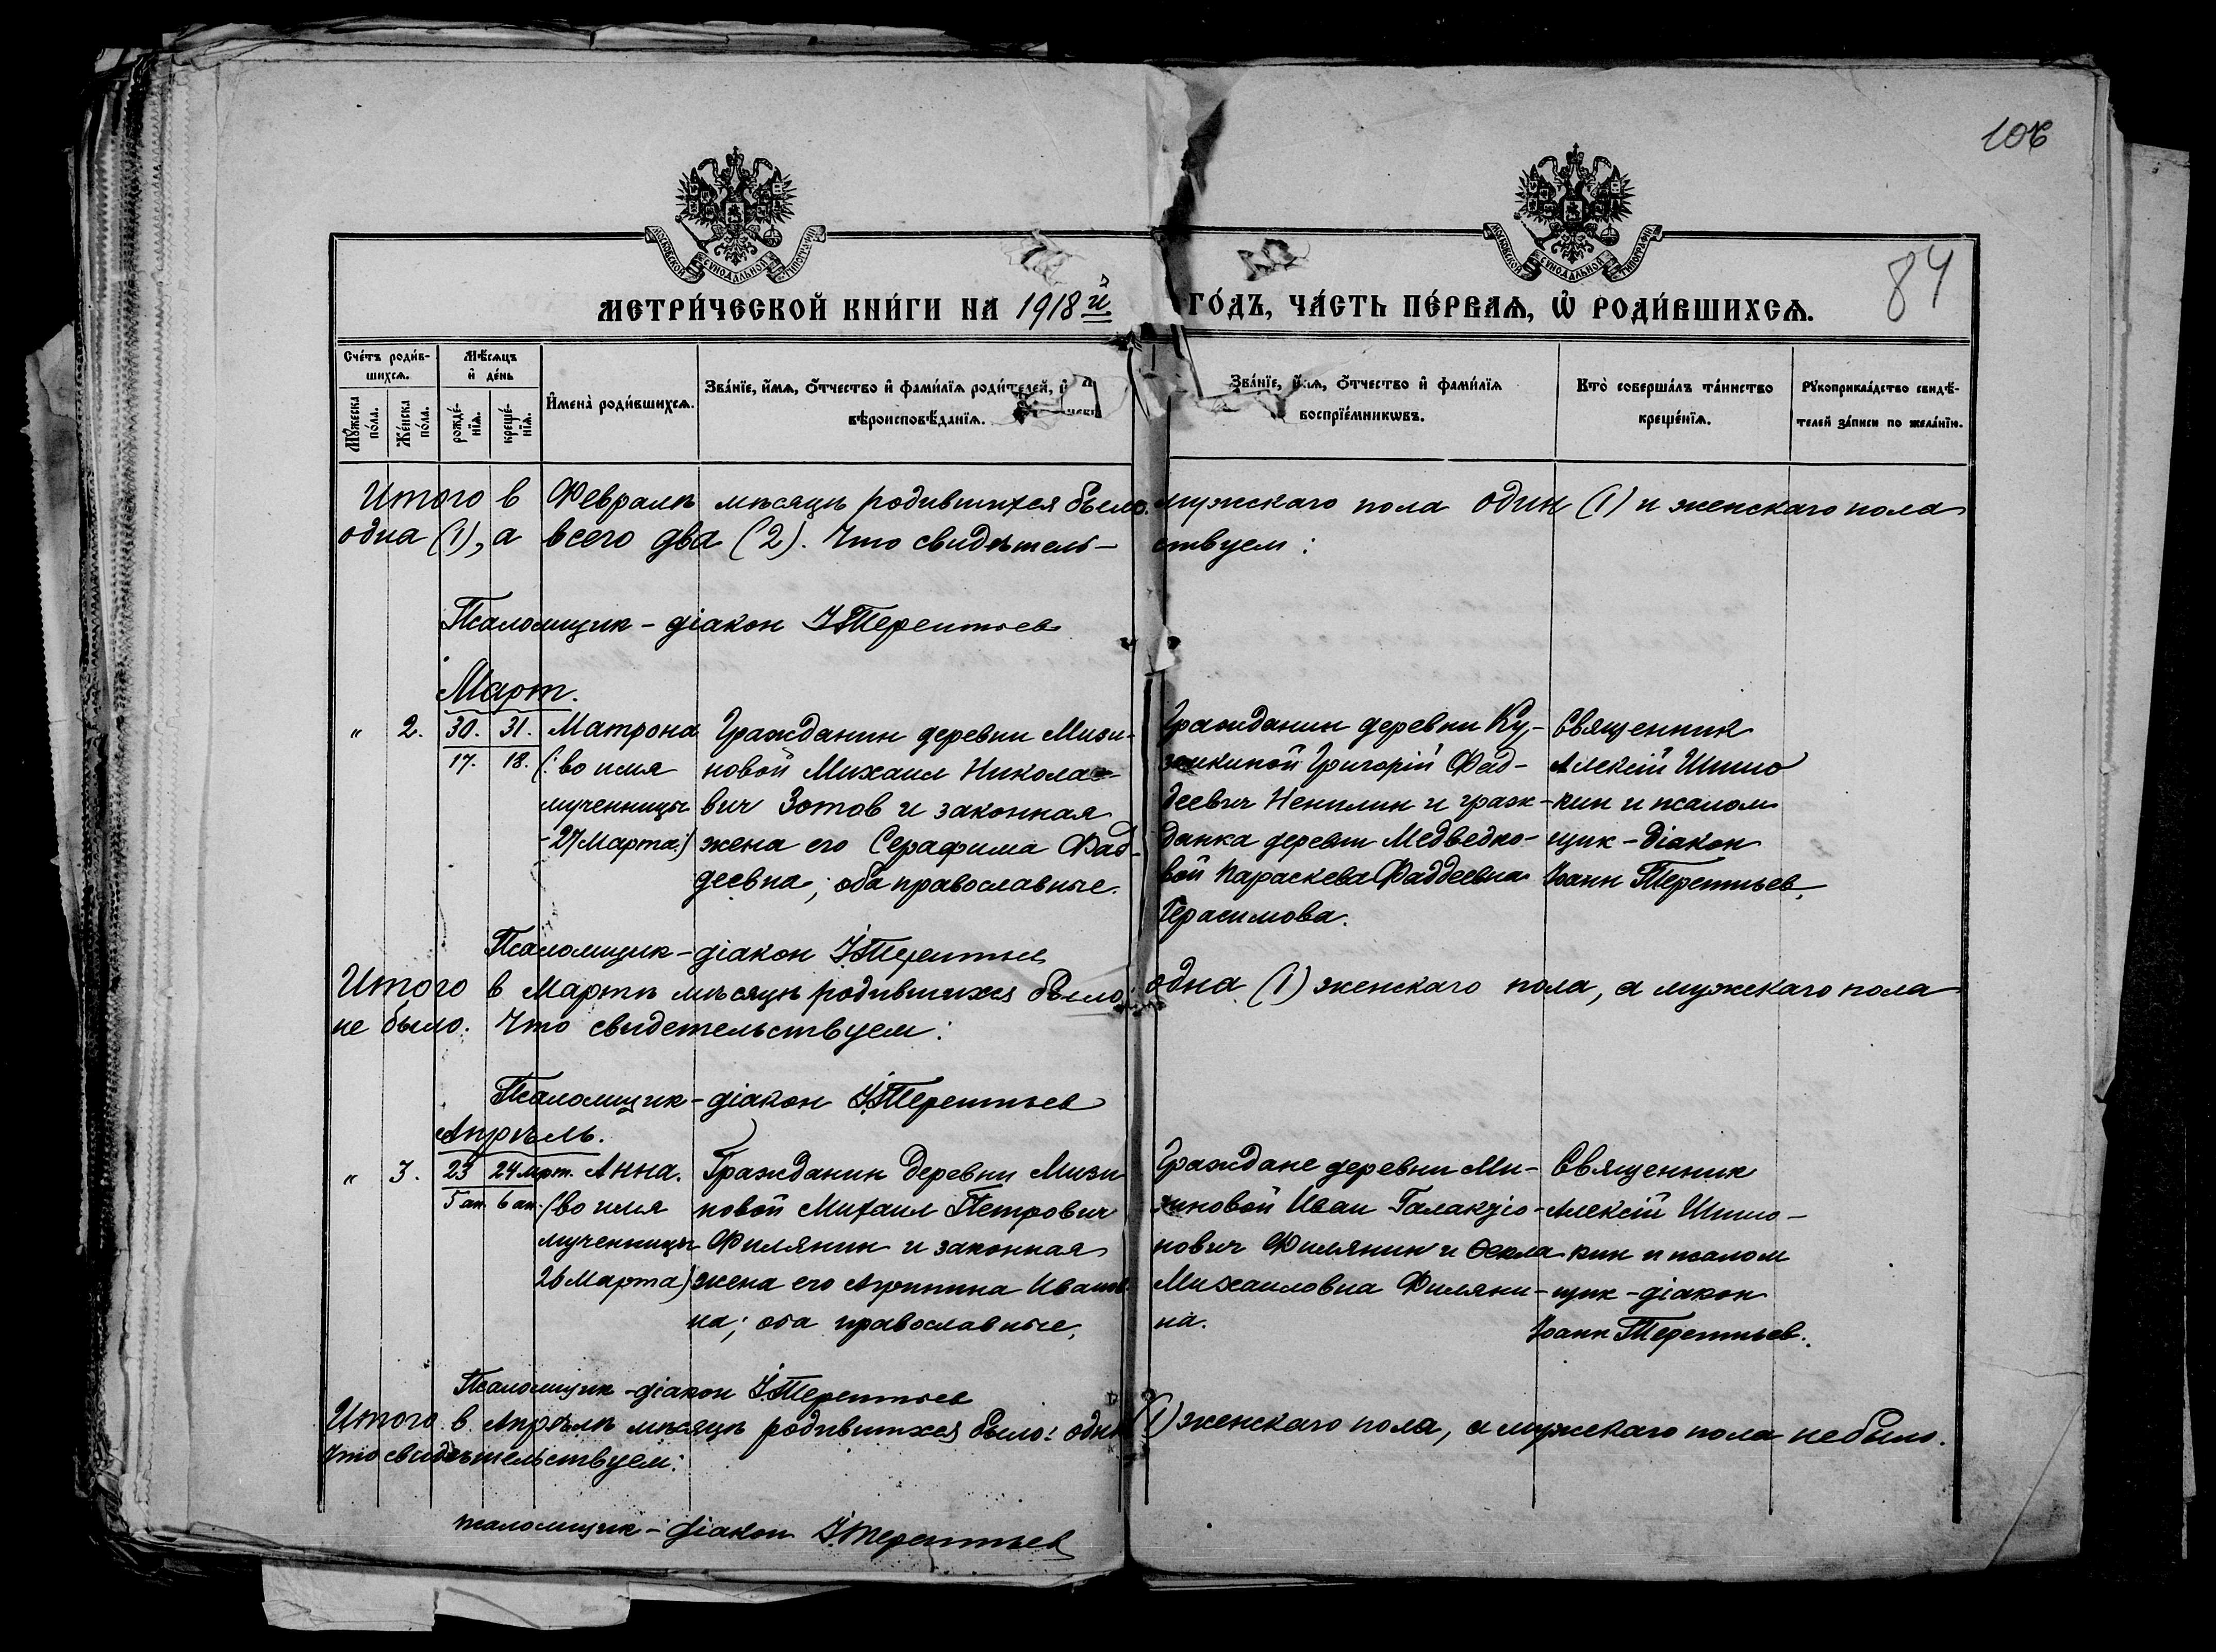 106
84
МОСКОВСКОЙ СѴНОДАЛЬНОЙ ТИПОГРАФІИ
МОСКОВСКОЙ СѴНОДАЛЬНОЙ ТИПОГРАФІИ
МЕТРИ́ЧЕСКОЙ КНИ́ГИ НА 1918й ГО́ДЪ, ЧА́СТЬ ПЕ́РВАѦ, Ѡ҆ РОДИ́ВШИХСѦ.
Сче́тъ роди́в-
шихсѧ.
Мꙋ́жеска по́ла.
Же́нска по́ла.
Мѣ́сѧцъ
и҆ де́нь
рожде́-
нїѧ.
креще́-
нїѧ.
И҆мена̀ роди́вшихсѧ.
Зва́нїе, и҆́мѧ, ѻ҆́тчество и҆ фами́лїѧ роди́телей, и҆
вѣроисповѣ́данїѧ.
Зва́нїе, и҆́мѧ, ѻ҆́тчество и҆ фами́лїѧ
воспрїе́мникѡвъ.
Кто̀ соверша́лъ та́инство
креще́нїѧ.
Рꙋкоприкла́дство свидѣ́-
телей за́писи по жела́нїю.
Итого в Февралѣ мѣсяцѣ родившихся было: мужскаго пола один (1) и женскаго пола
одна (1), а всего два (2). Что свидѣтель- ствуем:
Псаломщик-діакон І.Терентьев
Март.
" 2. 30. 31. Матрона Гражданин деревни Мизи-
17. 18. (:во имя новой Михаил Николае-
мученницы вич Зотов и законная
-27 Марта:) жена его Серафима Фад-
деевна; оба православные.
Гражданин деревни Ку-
земкиной Григорій Фад-
деевич Ненилин и граж-
данка деревни Медведко-
вой Параскева Фаддеевна
Герасимова.
Священник
Алексій Шишо
кин и псалом
щик-діакон
Іоанн Терентьев.
Псаломщик-діакон І.Терентьев
Итого в Мартѣ мѣсяцѣ родившихся было: одна (1) женскаго пола, а мужскаго пола
не было. Что свидетельствуем:
Псаломщик-діакон І.Терентьев
Апрѣль.
" 3. 23 24 март. Анна. Гражданин деревни Мизи
5 ап. 6 ап. (во имя новой Михаил Петрович
мученницы Филянин и законная
26 Марта) жена его Агрипина Иванов-
на; оба православные.
Граждане деревни Ми-
зиновой Иван Галактіо-
нович Филянин и Ѳекла
Михаиловна Филяни-
на.
Священник
Алексій Шишо-
кин и псалом
щик-діакон
Іоанн Терентьев.
Псаломщик-діакон І.Терентьев
Итого в Апрѣлѣ мѣсяцѣ родившихся было: одна (1) женскаго пола, а мужскаго пола не было.
Что свидѣтельствуем:
псаломщик-діакон І.Терентьев